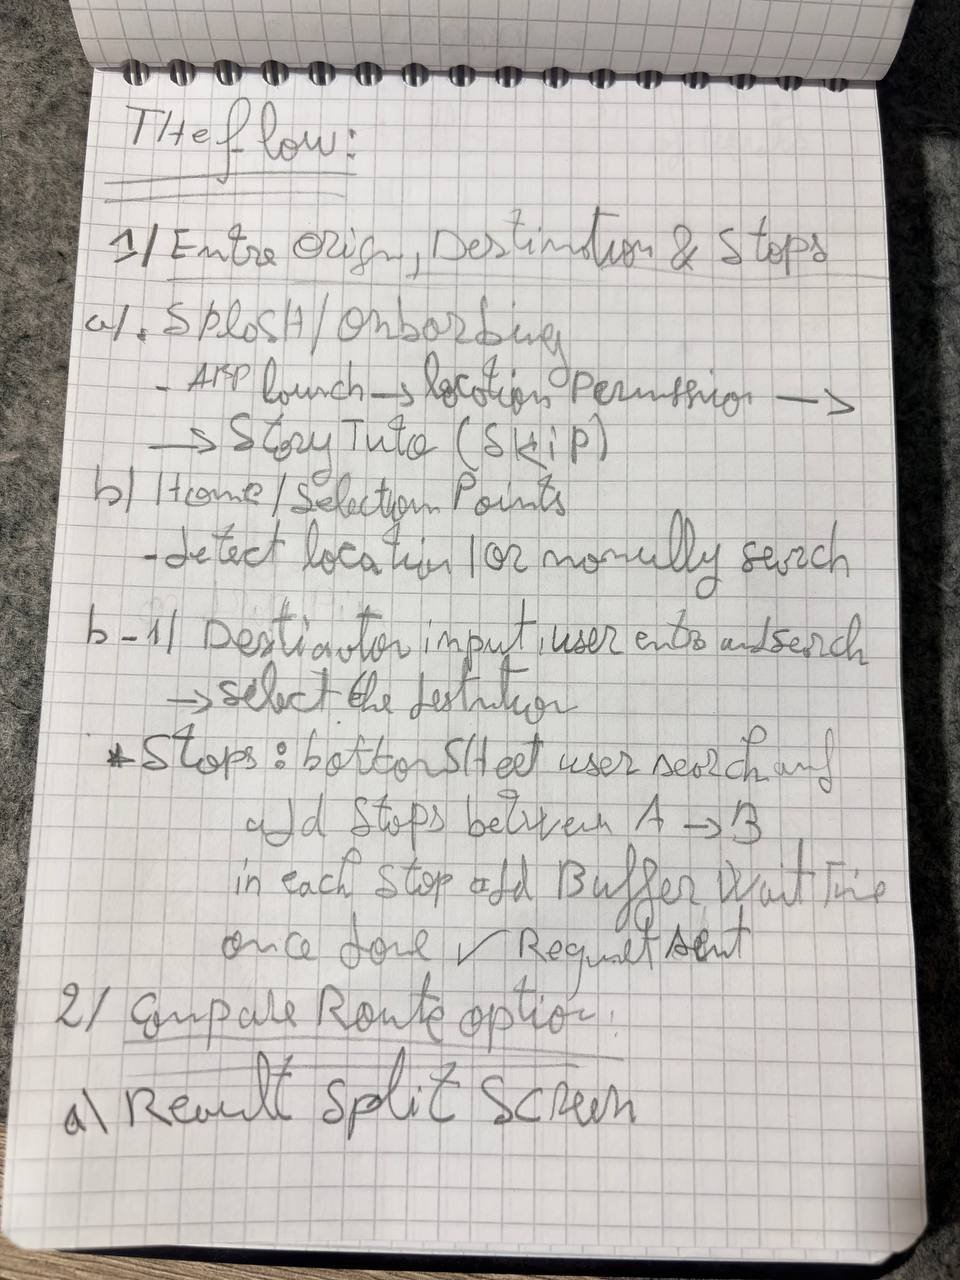 THe flow:
1/ Entre Orign, Destination & Stops
a/. SplasH/Onbording
- APP launch → location Permission →
→ Story Tuto (SKIP)
b/ Home/Selection Points
- detect location / or manually serch
b-1/ Destiantion input, user ents and serch
→ select the destntion
* Stops: bottom SHeet user search and
add Stops between A → B
in each Stop add Buffer Wait Time
once done ✓ Request sent
2/ Compare Route option:
a\ Result Split Screen